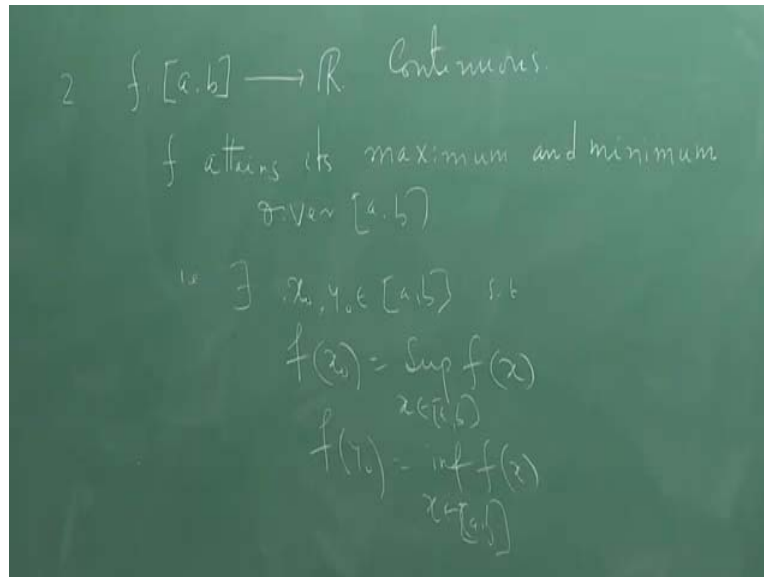 2 f. [a.b] → R. Continuous.
f attains its maximum and minimum
over [a.b]
ie ∃ x₀, y₀ ∈ [a,b] s.t
f(x₀) = Sup f(x)
x∈[a,b]
f(y₀) = inf f(x)
x∈[a,b]